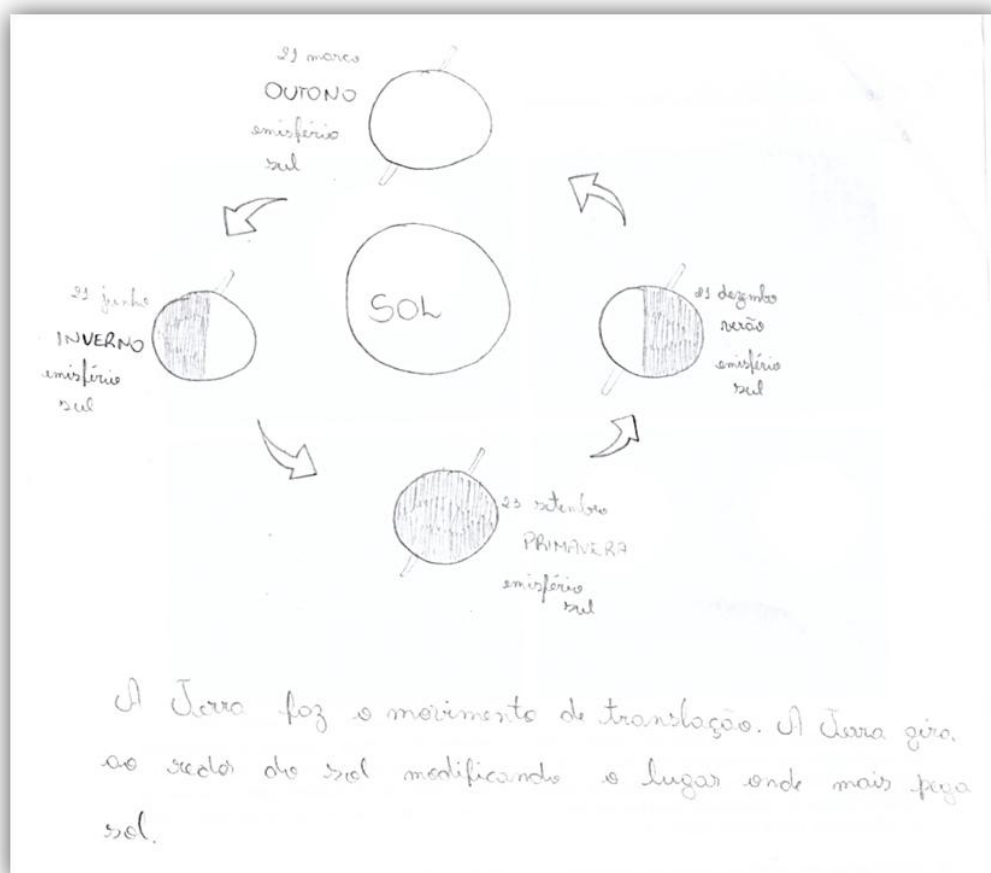 21 março
OUTONO
emisfério
sul
21 junho
INVERNO
emisfério
sul
SOL
21 dezembo
verão
emisfério
sul
23 setembro
PRIMAVERA
emisfério
sul
A Terra faz o movimento de translação. A Terra gira
ao redor do sol modificando o lugar onde mais pega
sol.